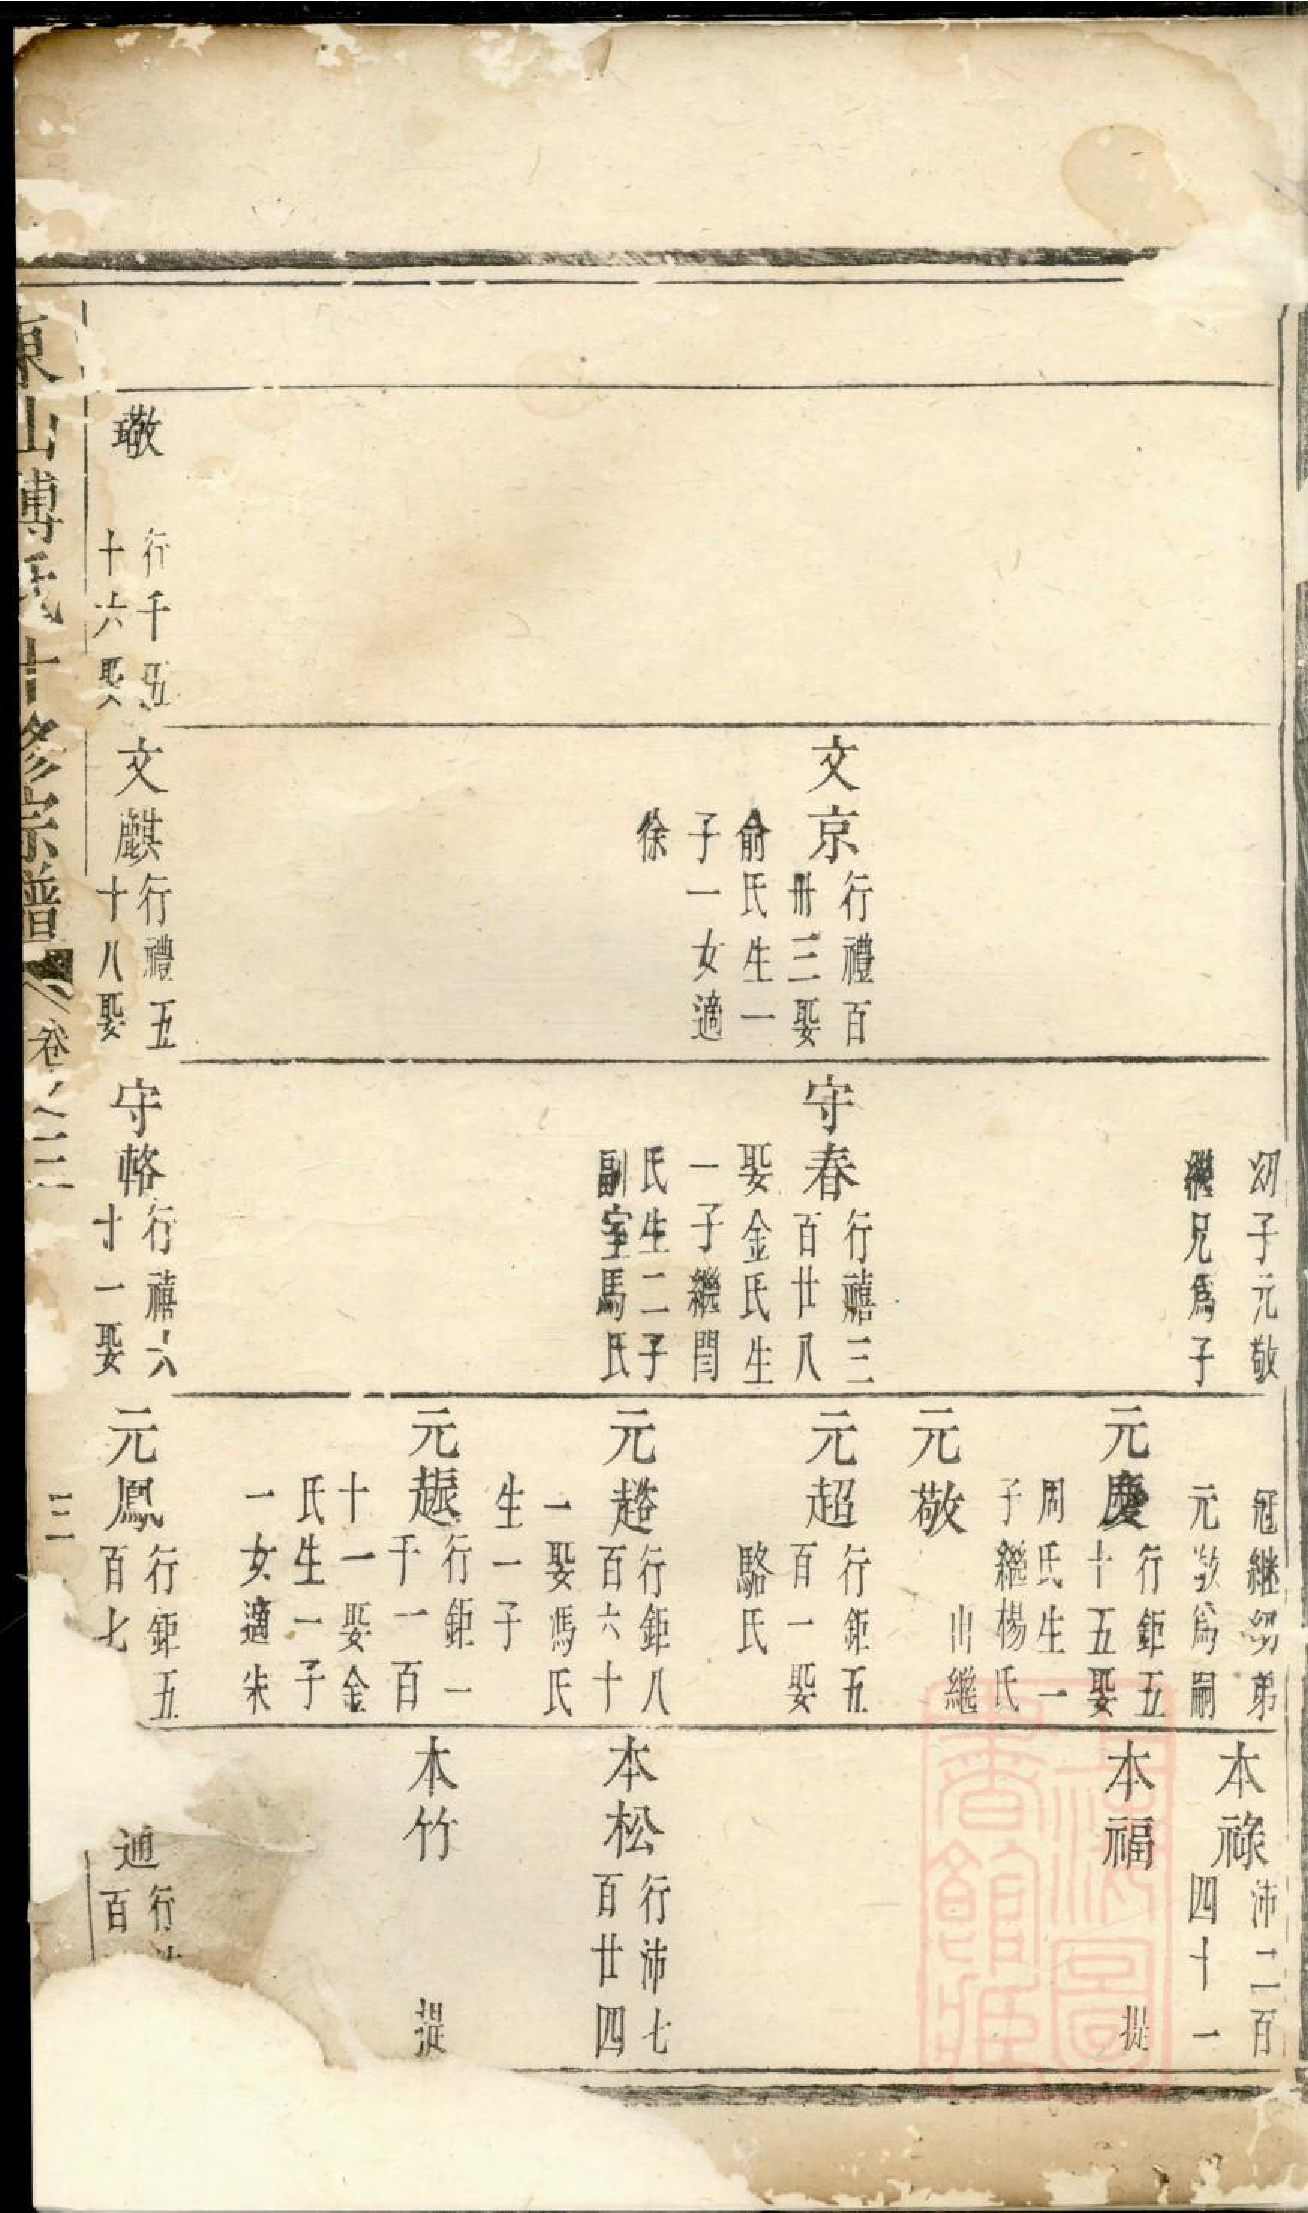 幼子元敬
繼兄爲子
冠継幼弟
元敬爲嗣
本祿
沛二百
四十一
元慶
行鉅五
十五娶
周氏生一
子繼楊氏
本福
提
元敬
出繼
文京
行禮百
卌三娶
俞氏生一
子一女適
徐
守春
行禧三
百廿八
娶金氏生
一子繼閆
氏生二子
副室馬氏
元超
行鉅五
百一娶
駱氏
元趦
行鉅八
百六十
一娶馮氏
生一子
本松
行沛七
百廿四
行鉅一
千一百
十一娶金
氏生一子
一女適朱
本竹
提
璥
行千五
十六娶
文麒
行禮五
十八娶
守輅
行禧六
十一娶
元鳳
行鉅五
百七
通
行
百
東山傅氏十修宗譜
卷之三
三